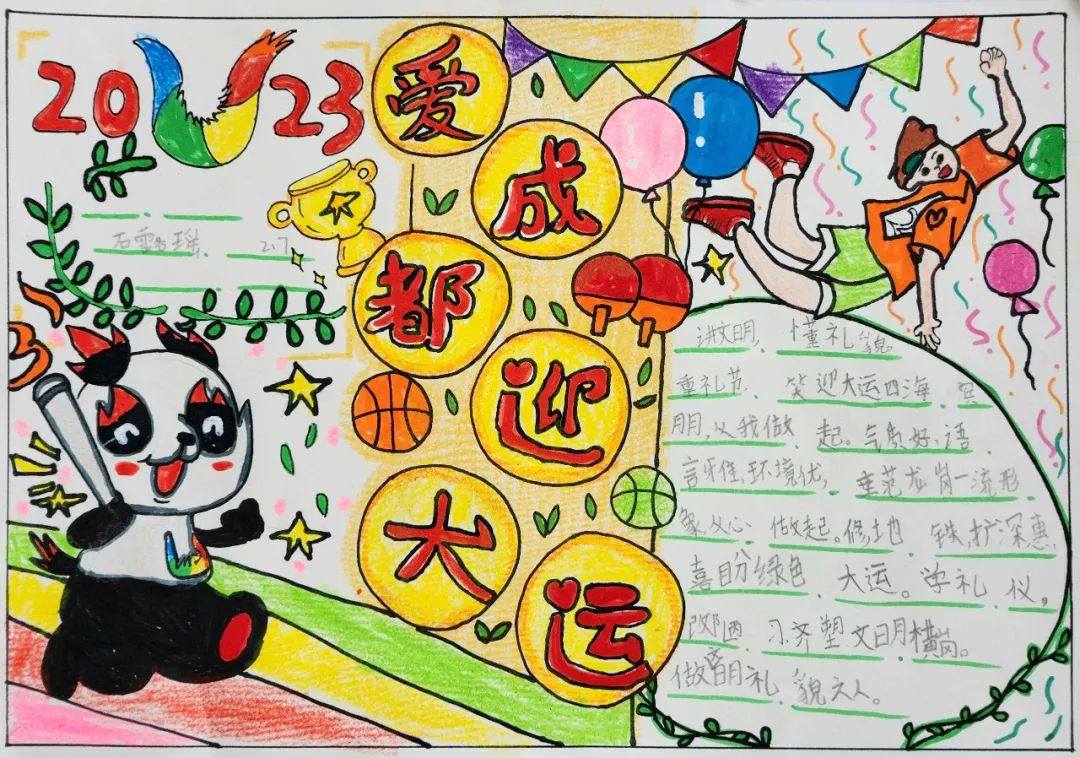 2023
爱
成
都
迎
大
运
石 瑶 2.7
讲文明, 懂礼貌
重礼节 笑迎大运四海 宾
朋,从我做 起。气质好,语
言牙佳,环境优, 垂范龙岗一流形
象,从心 做起。修,地 铁,扩深惠
喜目分绿色 大运。学礼 仪,
改陋 习齐塑 文明横岗。
做 明礼 貌之人。